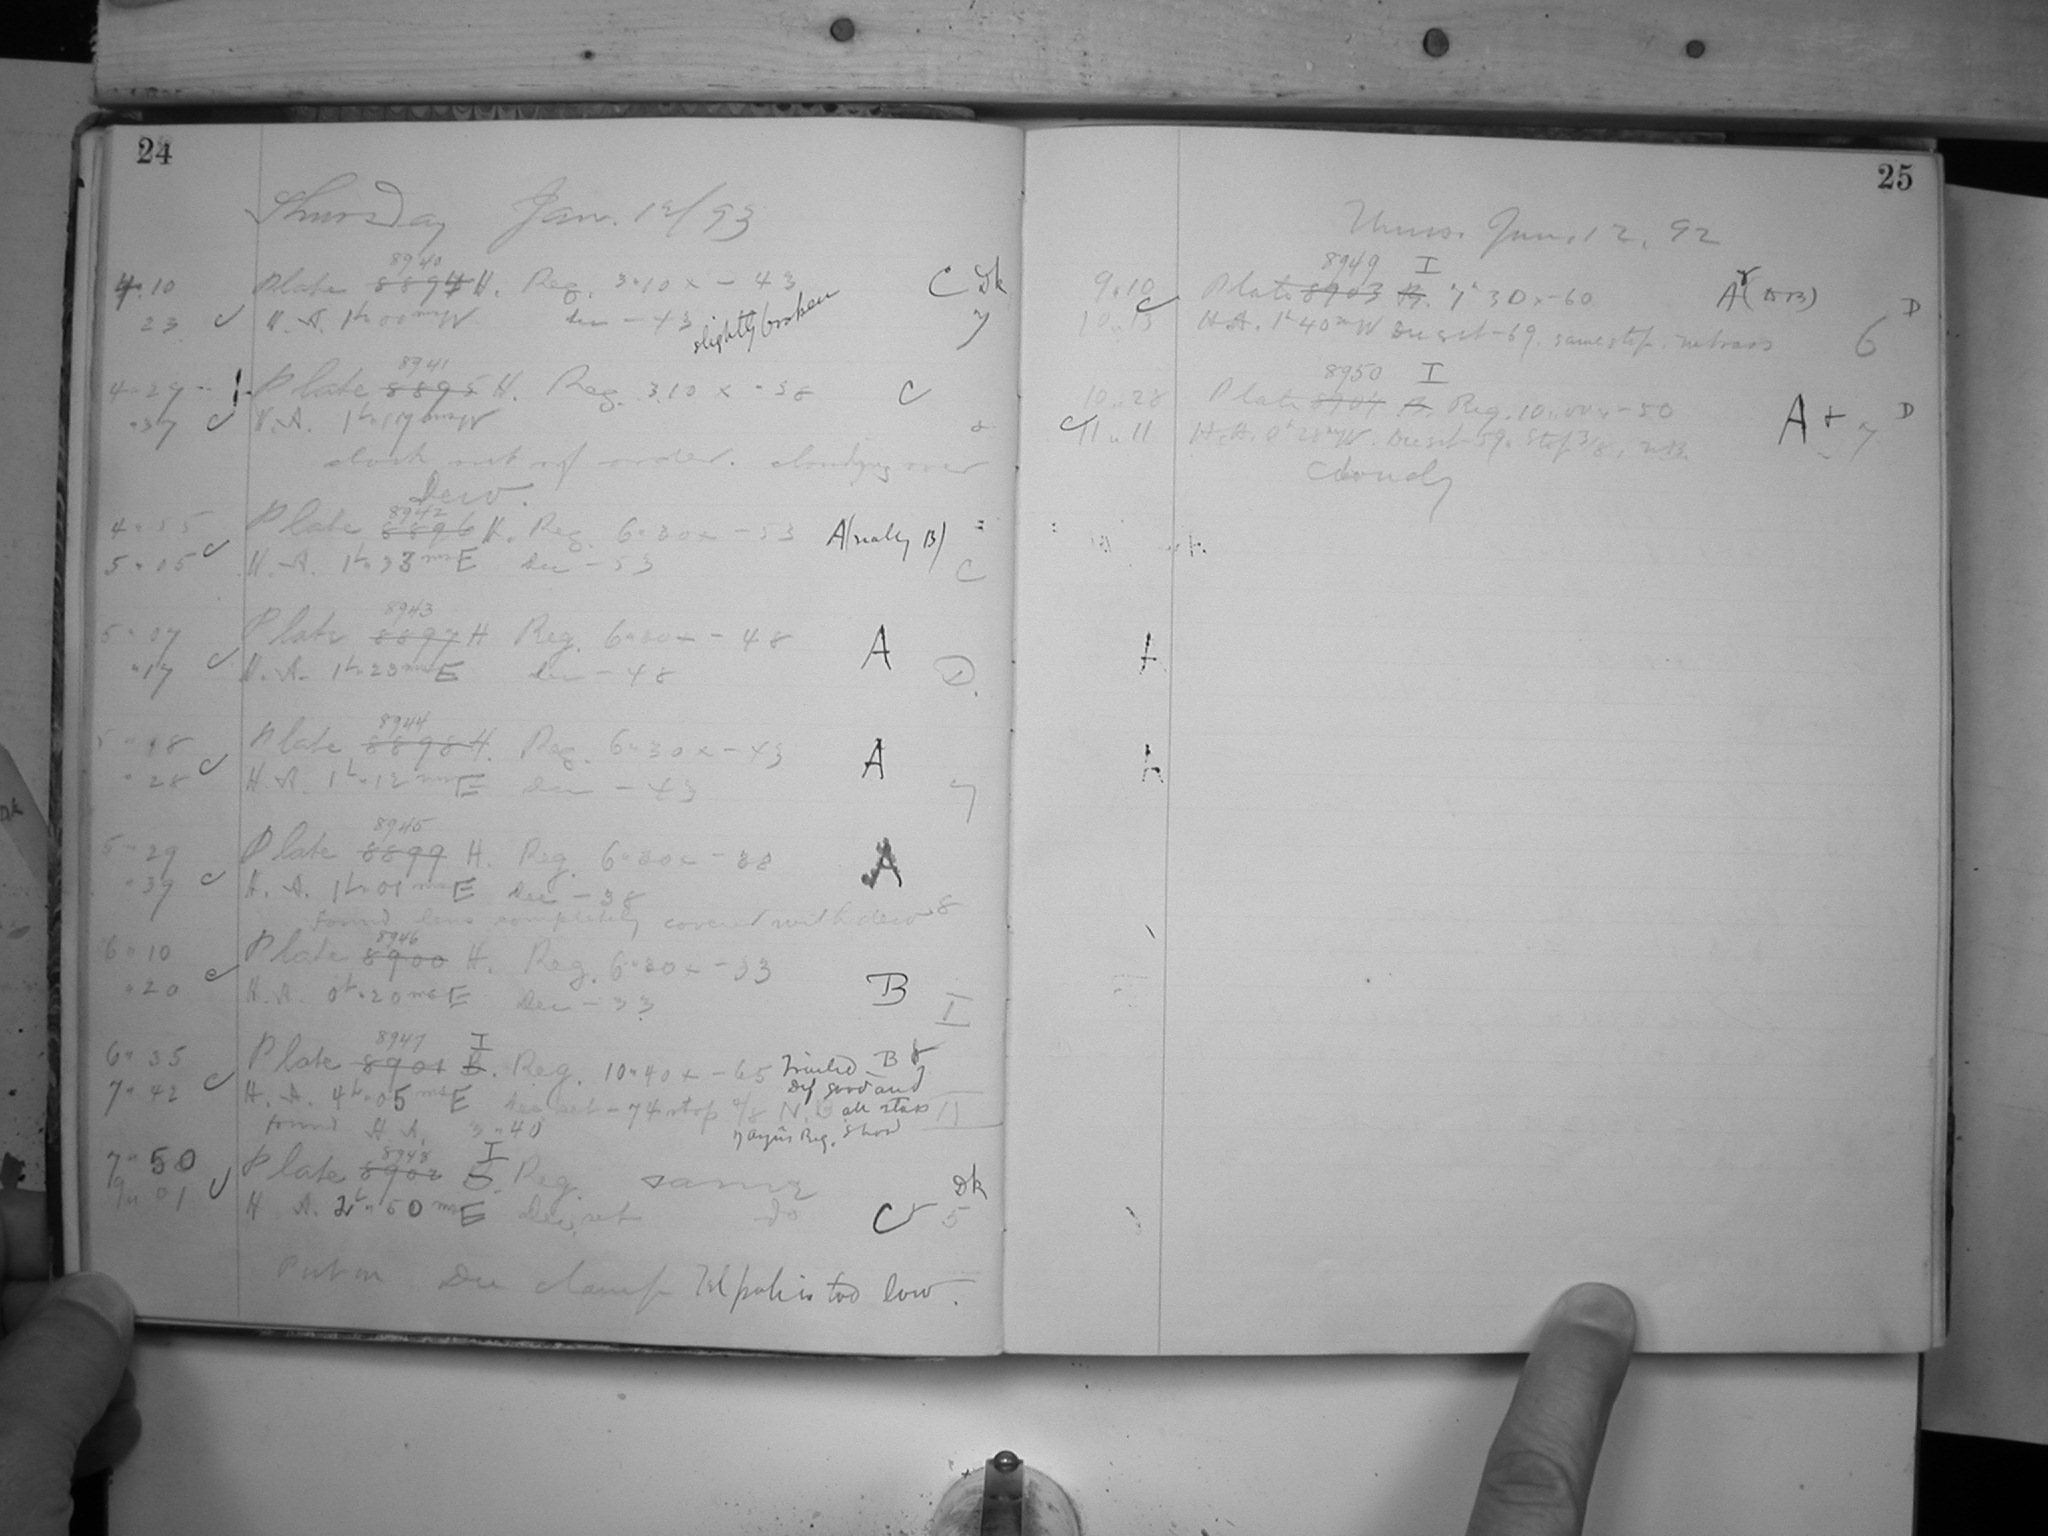 24
Thursday Jan. 12/93
8940
4.10 Plate 8894 H. Reg. 3.10 x - 43 C Dk
23 H. A. 1h.00m W Dec - 43 slightly broken 7
8941
4.29 Plate 8895 H. Reg. 3.10 x - 38 C
.37 H. A. 1h.17m W
clock out of order. clouding over
Dew.
8942
4.55 Plate 8896 H. Reg. 6.30 x - 53 A (really B)
5.05 H. A. 1h.33m E Dec - 53 C
8943
5.07 Plate 8897 H Reg. 6.30 x - 48 A
.17 H. A. 1h.23m E Dec - 48 D.
8944
5.18 Plate 8898 H. Reg. 6.30 x - 43 A
.28 H. A. 1h.12m E Dec - 43 7
8945
5.29 Plate 8899 H. Reg. 6.30 x - 38 A
.39 H. A. 1h.01m E Dec - 38 8
found lens completely covered with dew
8946
6.10 Plate 8900 H. Reg. 6.30 x - 33 B
.20 H. A. 0h.20m E Dec - 33 I
8947 I
6.35 Plate 8901 B. Reg. 10.40 x - 65 Trailed B r
7.42 H. A. 4h.05m E Dec set - 74 stop Def good and all stars
found H. A. 3.40 in Reg. show
8948 I
7.50 Plate 8902 B. Reg. same Dk
9.01 H A. 2h.50m E Dec set do C r 5
Put on Dec clamp Tel pole is too low.
25
Thurs. Jan. 12, 92
8949 I
9.10 Plate 8903 B. 7h 30 x - 60 Ar (B) D
10.13 H. A. 1h 40m W Dec set - 69. same stop. 6
8950 I
10.28 Plate 8904 B. Reg. 10.00 x - 50 A r D
11.11 H. A. 0h 20m W. Dec set - 59. Stop 3/8. 7
Cloudy